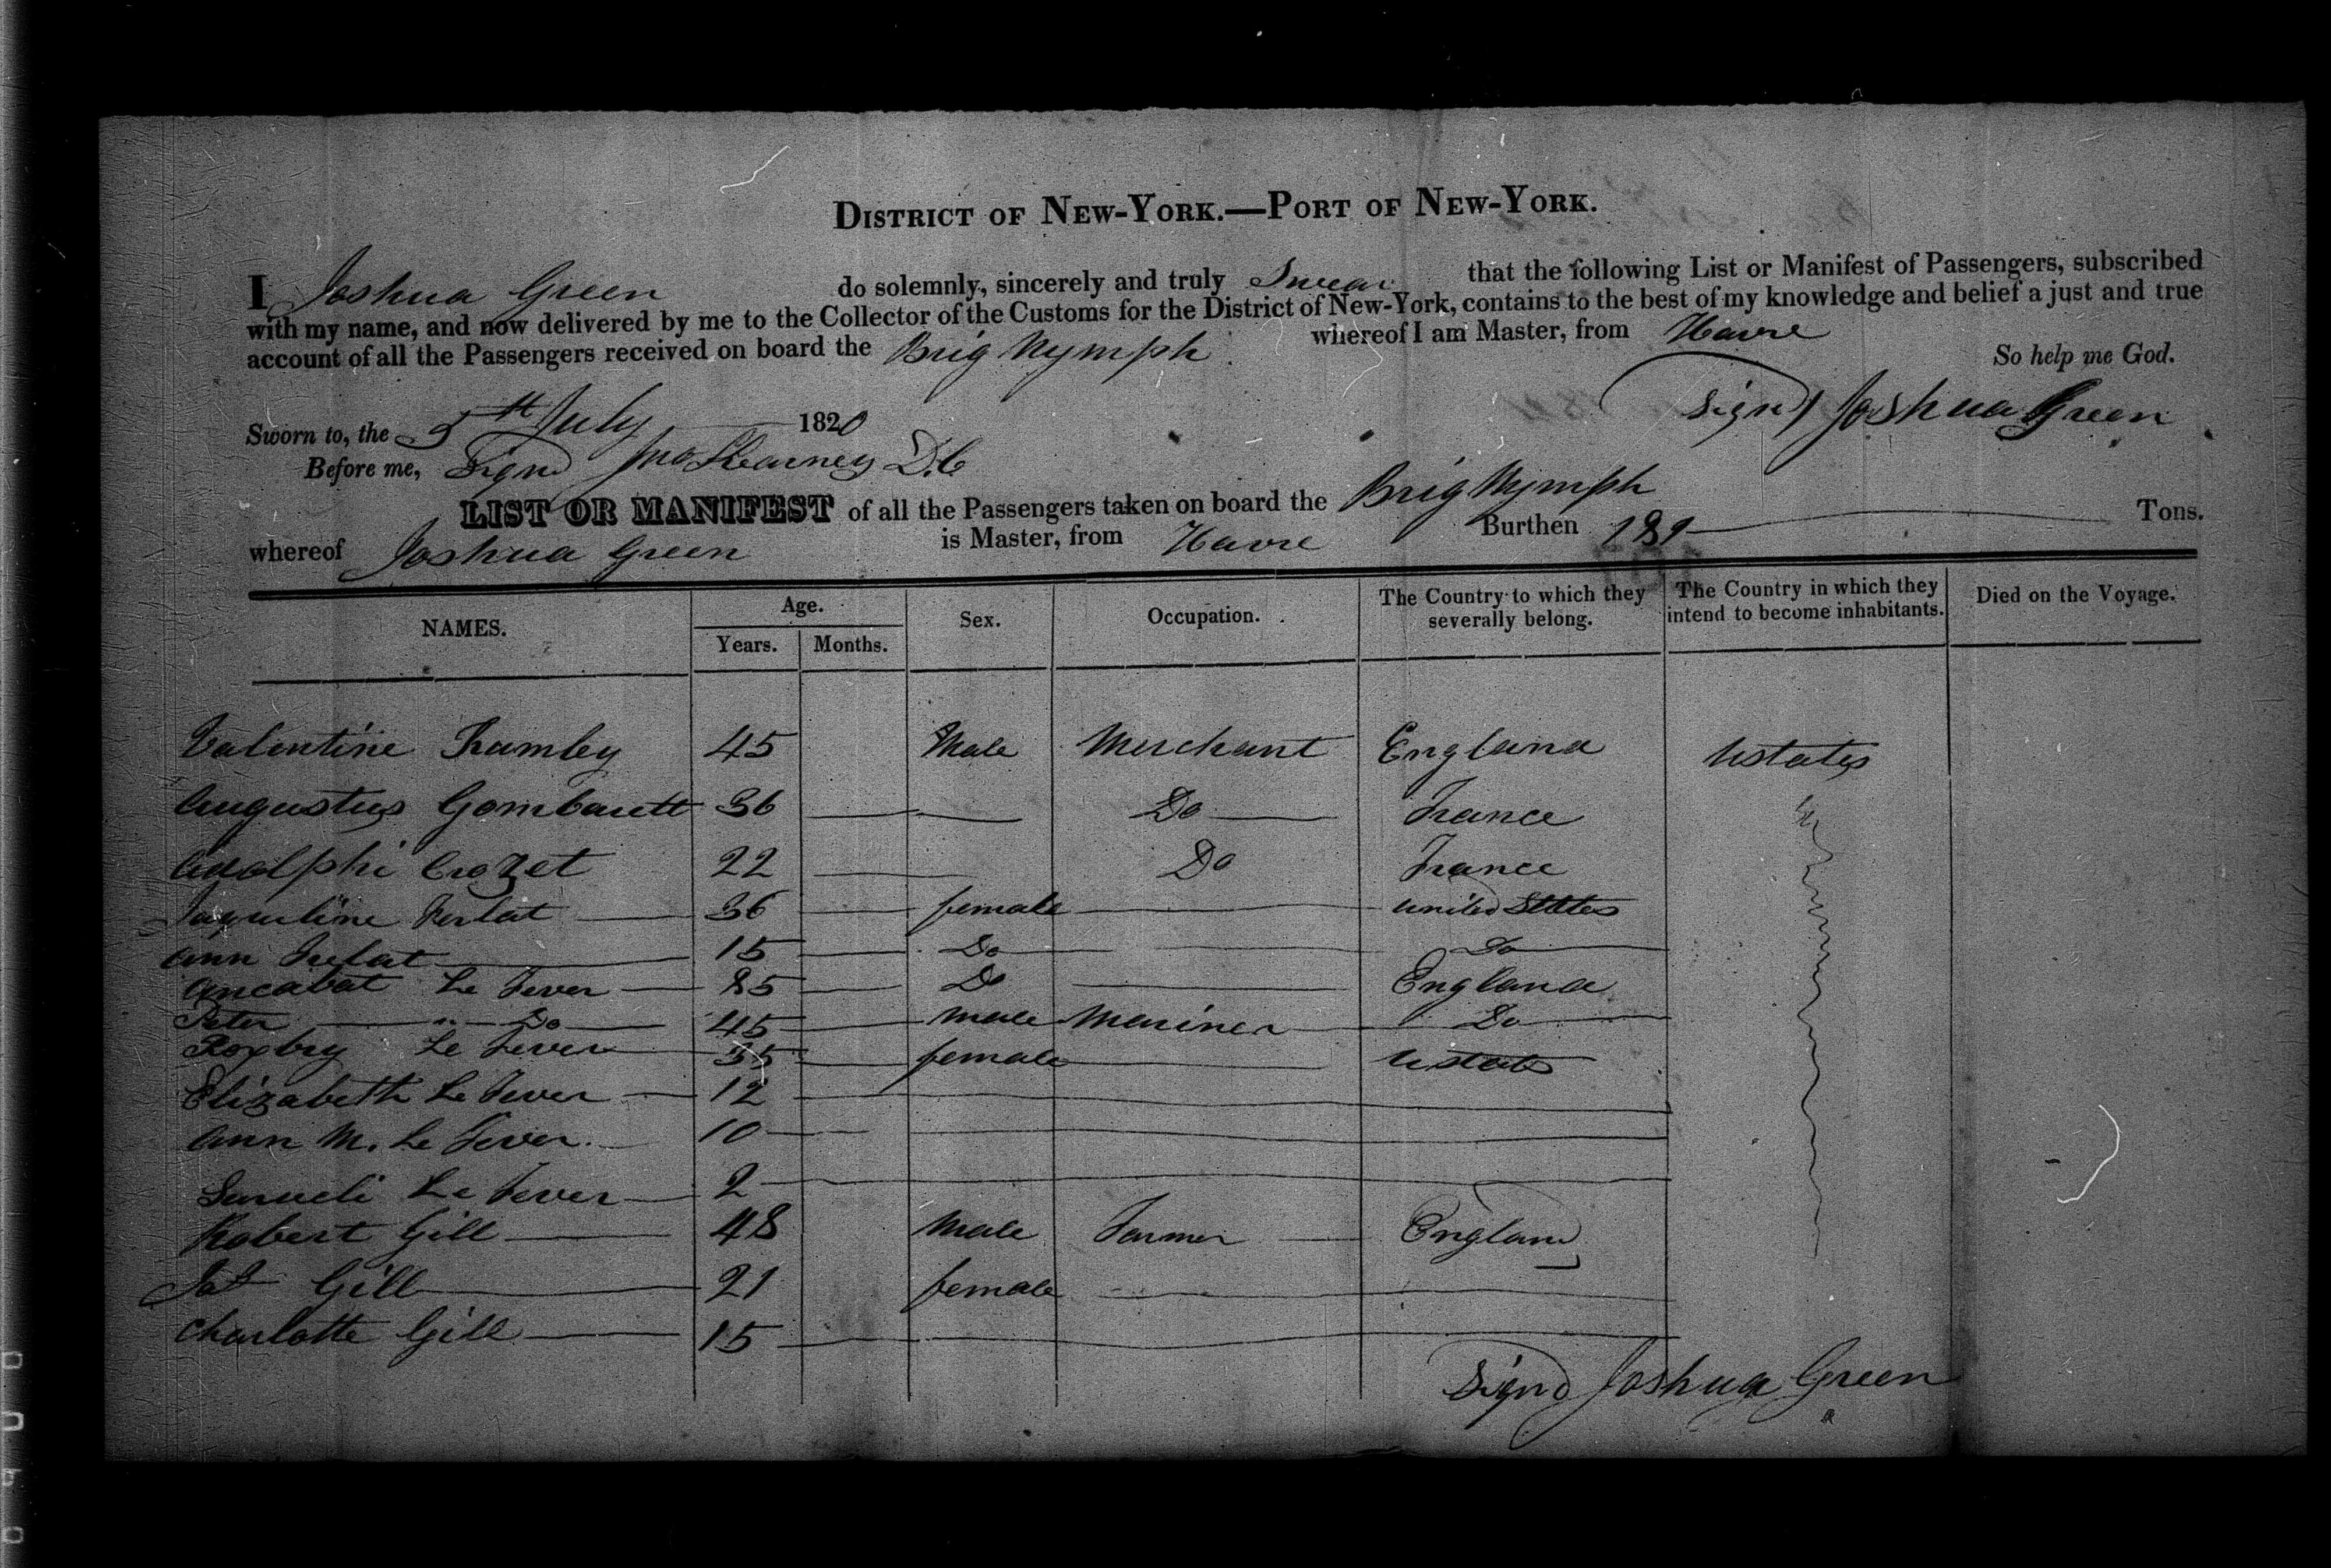 DISTRICT OF NEW-YORK.—PORT OF NEW-YORK.
I Joshua Green do solemnly, sincerely and truly Swear that the following List or Manifest of Passengers, subscribed
with my name, and now delivered by me to the Collector of the Customs for the District of New-York, contains to the best of my knowledge and belief a just and true
account of all the Passengers received on board the Brig Nymph whereof I am Master, from Havre
So help me God.
Sworn to, the 5th July 1820 Signd Joshua Green
Before me, Signd Jno Skearney D.C
LIST OR MANIFEST of all the Passengers taken on board the Brig Nymph
whereof Joshua Green is Master, from Havre Burthen 189 Tons.
NAMES. Age. Years. Months. Sex. Occupation. The Country to which they severally belong. The Country in which they intend to become inhabitants. Died on the Voyage.
Valentine 45 Male Merchant England Ustates
Augustus Gombault 36 Do France
Adolphi Crozet 22 Do France
Jaqueline 36 female United States
Ann 15 Do Do
Le Fever Do England
Peter " Do 45 Male Mariner Do
Le Fever 35 female Ustates
Elizabeth Le Fever 12
Ann M. Le Fever 10
Le Fever 2
Robert Gill 48 Male Farmer England
Gill 21 female
Charlotte Gill 15
Signd Joshua Green